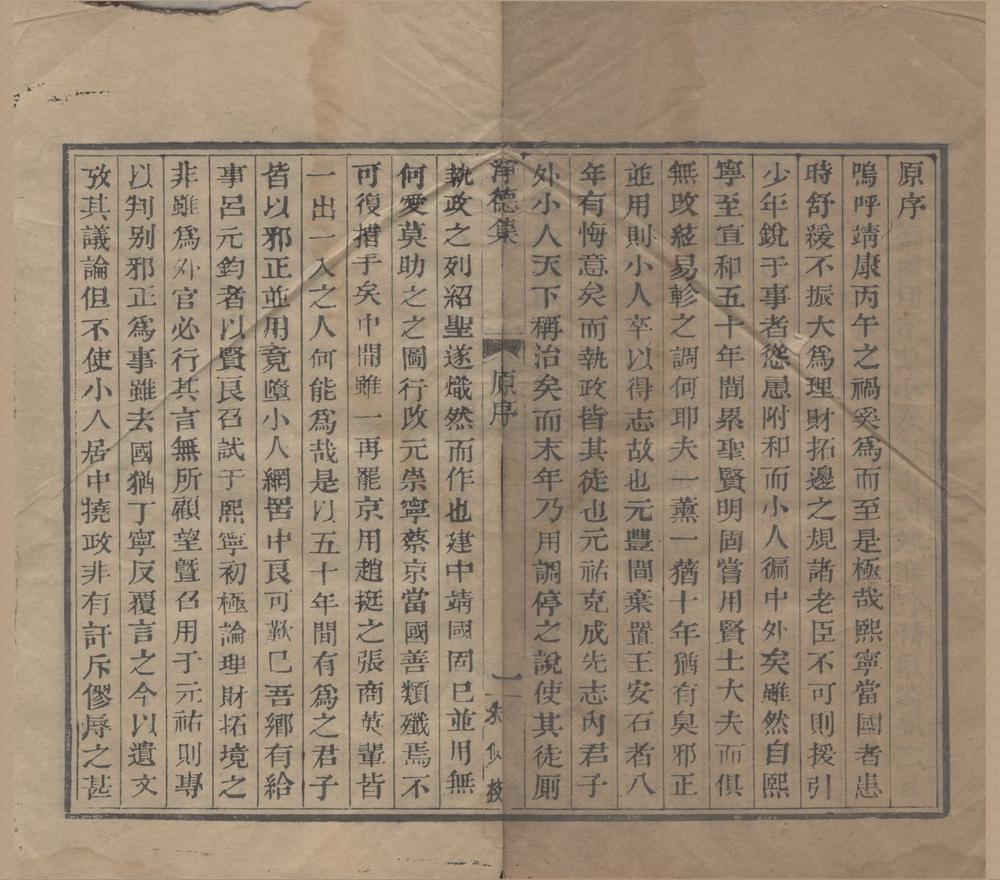 原序
嗚呼靖康丙午之禍奚爲而至是極哉熙寧當國者患
時舒緩不振大爲理財拓邊之規諸老臣不可則援引
少年銳于事者慫恿附和而小人徧中外矣雖然自熙
寧至宣和五十年間累聖賢明固嘗用賢士大夫而俱
無攺絃易軫之調何耶夫一薰一蕕十年猶有臭邪正
並用則小人卒以得志故也元豐間棄置王安石者八
年有悔意矣而執政皆其徒也元祐克成先志內君子
外小人天下稱治矣而末年乃用調停之說使其徒厠
淨德集
原序
一
朱攸校
執政之列紹聖遂熾然而作也建中靖國固巳並用無
何愛莫助之之圖行攺元崇寧蔡京當國善類殲焉不
可復措手矣中間雖一再罷京用趙挺之張商英輩皆
一出一入之人何能爲哉是以五十年間有爲之君子
皆以邪正並用竟墮小人網罟中良可歎巳吾鄉有給
事呂元鈞者以賢良召試于熙寧初極論理財拓境之
非雖爲外官必行其言無所顧望暨召用于元祐則專
以判别邪正爲事雖去國猶丁寧反覆言之今以遺文
攷其議論但不使小人居中撓政非有訐斥僇辱之甚